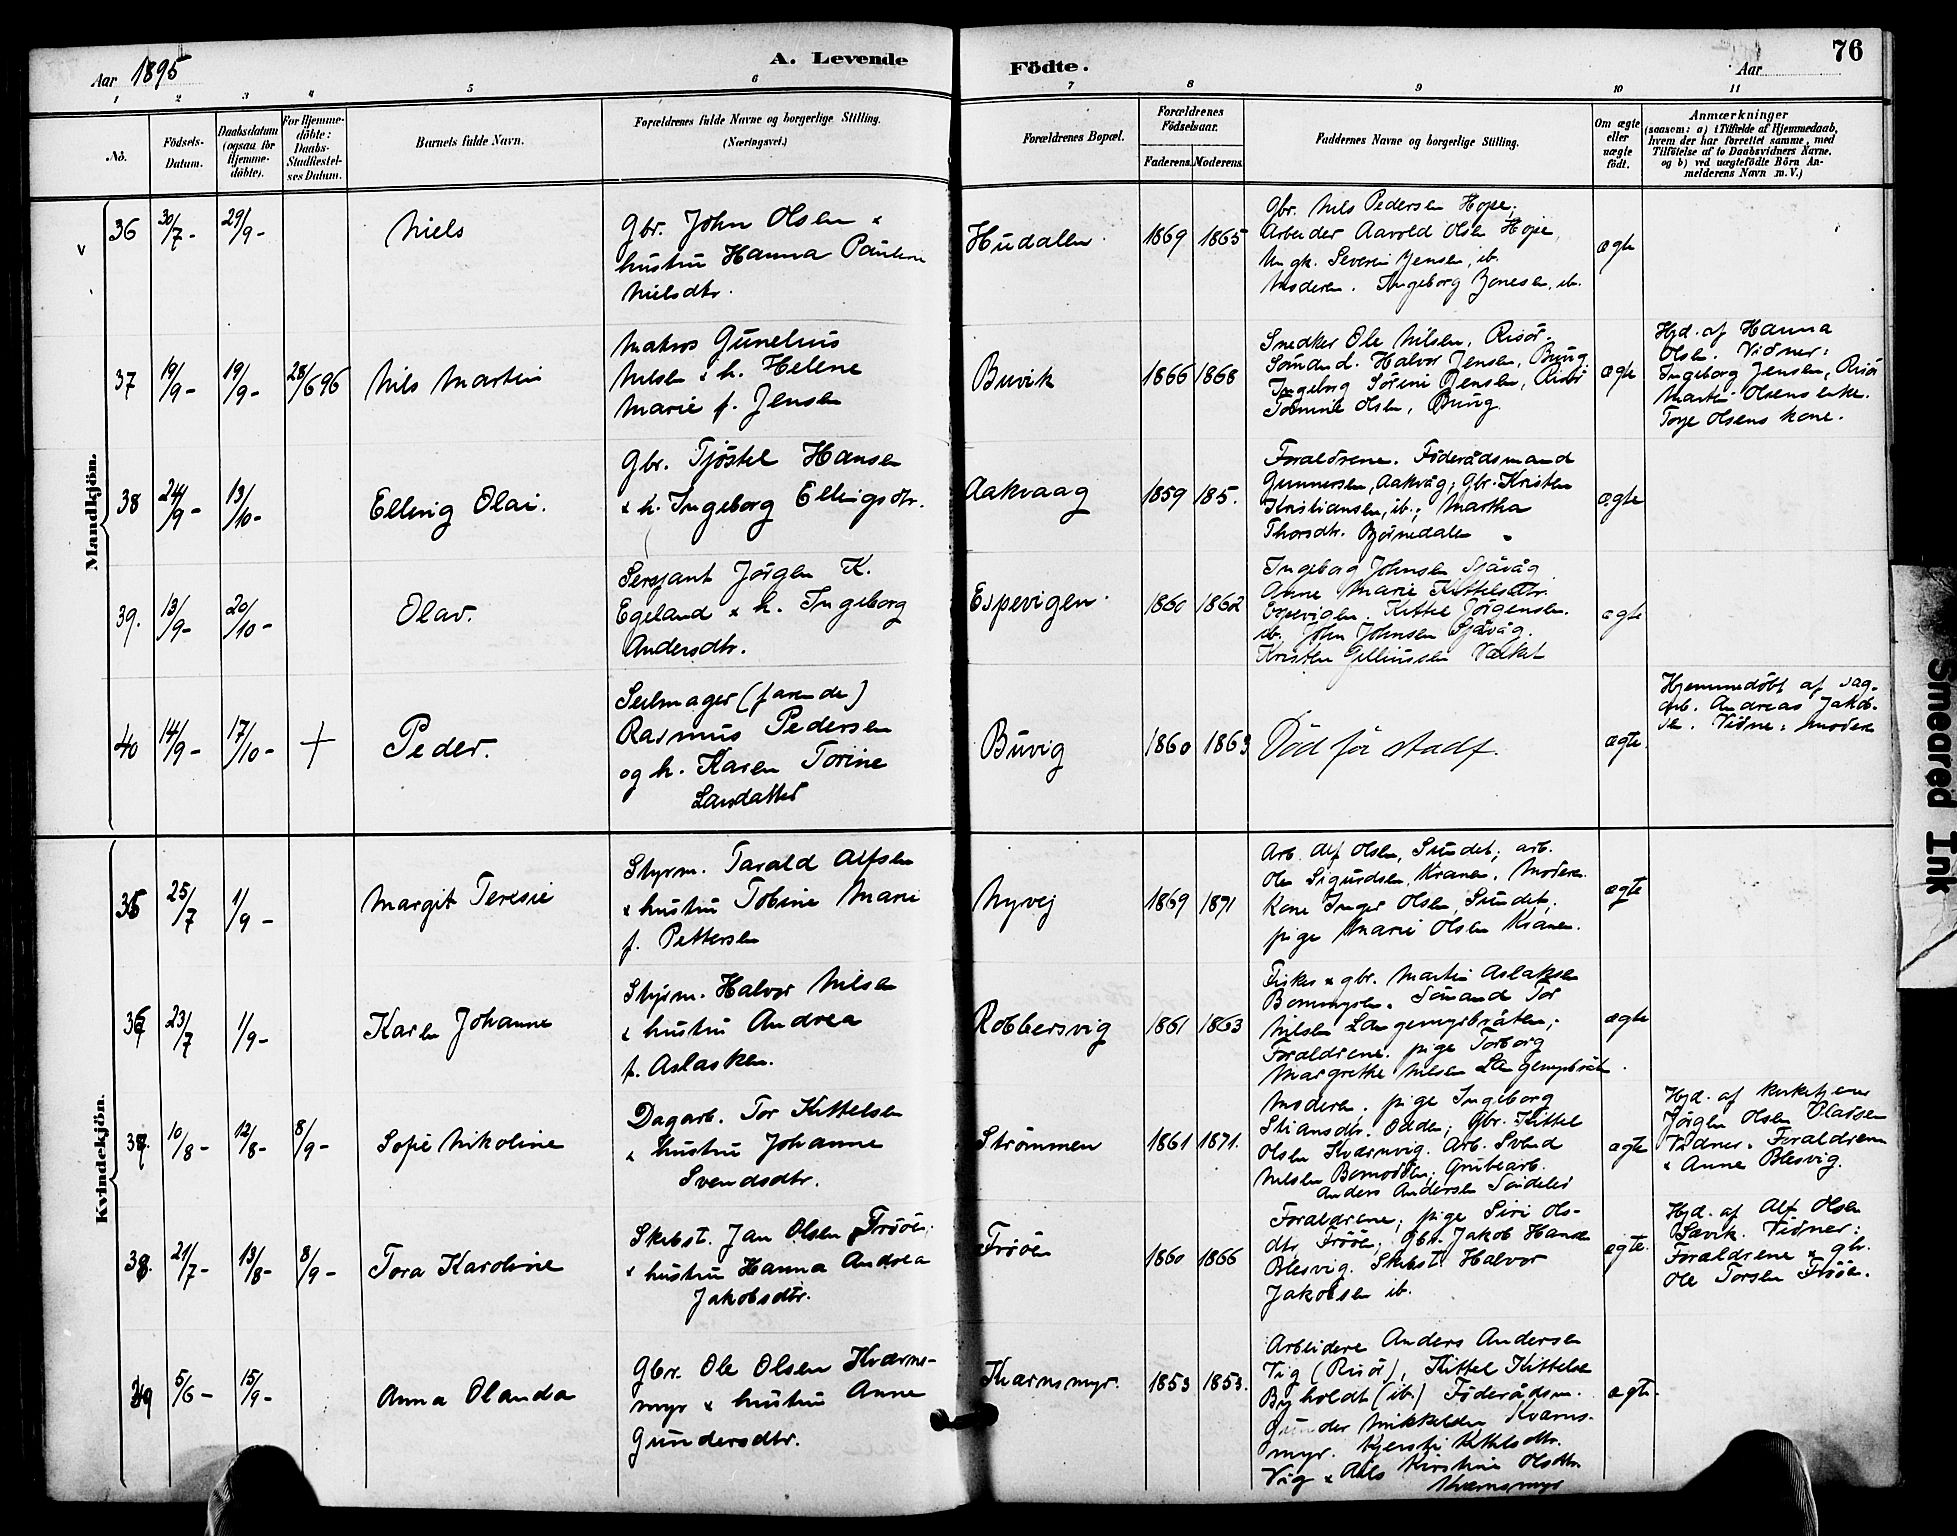 Aar 1895
A. Levende
Födte.
Aar
76
1 2 3 4 5 6 7 8 9 10 11
No.
Födsels-
Datum.
Daabsdatum
(ogsaa for
Hjemme-
döbte).
For Hjemme-
döbte:
Daabs-
Stadfæstel-
ses Datum.
Barnets fulde Navn.
Forældrenes fulde Navne og borgerlige Stilling.
(Næringsvei.)
Forældrenes Bopæl.
Forældrenes
Födselsaar.
Faderens. Moderens.
Faddernes Navne og borgerlige Stilling.
Om ægte
eller
uægte
födt.
Anmærkninger
(saasom: a) i Tilfælde af Hjemmedaab,
hvem der har forrettet samme, med
Tilföielse af to Daabsvidners Navne,
og b) ved uægtefödte Börn An-
melderens Navn m. V.)
Mandkjön.
v 36 30/7- 29/9- Niels
Gbr. John Olsen &
hustru Hanna Pauline
Nielsdtr.
Hudalen 1869 1865
Gbr. Nils Pedersen Hope,
Arbeider Aavold Olsen Hope,
Ungk. Severin Jensen, ib.
Moderen. Ingeborg Jonesen, ib.
ægte
37 19/9- 19/9- 28/6 96 Nils Martin
Matros Gunelius
Nilsen & h. Helene
Marie f. Jensen
Buvik 1866 1868
Snedker Ole Nilsen, Risör.
Sömand. Halvor Jensen, Buvig
Ingeborg Sörine Jensen, Risör
Tomine Olsen, Buvig.
ægte
Hjd. af Hanna
Olsen. Vidner:
Ingeborg Jensen, Risör
Martin Olsens enke.
Torje Olsens kone.
38 24/9- 13/10- Elling Olai.
Gbr. Tjöstel Hansen
& h. Ingeborg Ellingsdtr.
Aakvaag 1859 185.
Forældrene. Föderådsmand
Gunnersen, Aakvåg; Gbr. Kristen
Kristiansen, ib.; Martha
Thorsdtr. Björnedalen
ægte
39. 13/9- 20/10- Olav.
Sersjant Jörgen K.
Egeland & h. Ingeborg
Andersdtr.
Espevigen 1860 1862
Ingeborg Johnsen Sjåvåg
Anne Marie Kittelsdtr.
Espevigen. Kittel Jörgensen.
ib. John Johnsen Sjåvåg.
Kristen Gelliussen
ægte
40 14/9- 17/10- + Peder.
Seilmager (farende)
Rasmus Pedersen
og h. Karen Torine
Larsdatter
Buvig 1860 1863
Död för stadf.
ægte
Hjemmedöbt af dag-
arb. Andreas Jakob-
sen. Vidne: moderen
Kvindekjön.
35 25/7 1/9- Margit Teresie
Styrm. Tarald Alfsen
& hustru Tobine Marie
f. Pettersen
Nyvej 1869 1871
Arb. Alf Olsen, Sundet; arb.
Ole Sigurdsen, Kranen. Moderen.
Kone Inger Olsen, Sundet;
pige Marie Olsen Kranen.
ægte
36 23/7 1/9- Karen Johanne
Styrm. Halvor Nilsen
& hustru Andrea
f. Aslaksen.
Robbersvig 1861 1863
Fisker & gbr. Martin Aslaksen
Bommyren. Sömand Tor
Nilsen Langemyrbråten;
Forældrene. pige Torborg
Margrethe Nilsen Langemyrbråten.
ægte
37 10/8- 12/8- 8/9- Sofie Nikoline
Dagarb. Tor Kittelsen
& hustru Johanne
Svendsdtr.
Strömmen 1861 1871.
Moderen. pige Ingeborg
Stiansdtr. Odden; Gbr. Kittel
Olsen Kværnvig. Arb. Svend
Nilsen Bomodden; Grubearb.
Anders Andersen Söndeled
ægte
Hjd. af kirketjener
Jörgen Olsen Oladsen
Vidner: Forældrene
& Anne Blesvig.
38. 21/7- 13/8- 8/9- Tora Karoline
Skibst. Jan Olsen Tröen;
& hustru Hanna Andrea
Jakobsdtr.
Tröen 1860 1866
Forældrene; pige Siri Ols-
dtr. Tröen; Gbr. Jakob Hansen
Blesvig. Skibst. Halvor
Jakobsen ib.
ægte.
Hjd. af Alf Olsen
Savik. Vidner:
Forældrene & gbr.
Ole Torsen Tröen.
39 5/6- 15/9- Anna Olanda
Gbr. Ole Olsen Kværns-
myr & hustru Anne
Gundersdtr.
Kværnsmyr. 1853 1853.
Arbeidere Anders Andersen
Vig (Risör), Kittel Kittelsen
Byholdt (ib.) Föderådsm.
Gunder Mikkelsen Kværns-
myr. Kjersti Kittelsdtr.
Vig & Aals Kirstine Olsdtr.
Kværnsmyr
ægte.
Smeared Ink